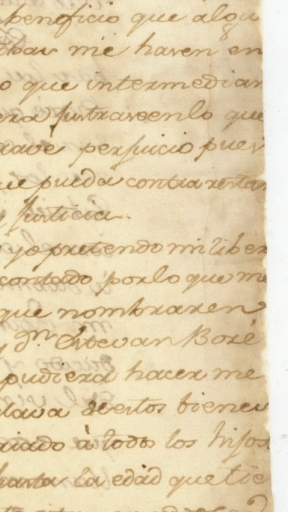 beneficio que algu
me hacen en
o que intermedian
era que
rave perjuicio pues
ue pueda contrarestar
y Justicia.
yo pretendo mi liber
contado por lo que me
que nombraren
y dn. Estevan Boré
pudiera hacer me
clava de estos bienes
riado à todos los hijos
hasta la edad que tie